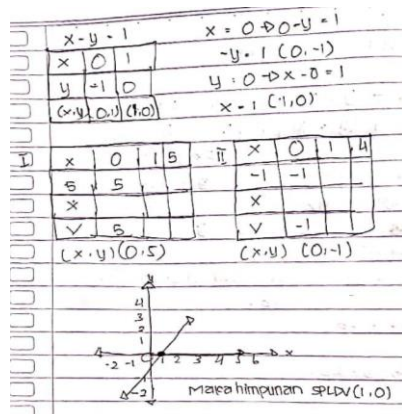 x - y = 1
x = 0 → 0 - y = 1
x 0 1
-y = 1 (0, -1)
y -1 0
y = 0 → x - 0 = 1
(x,y) (0,1) (1,0)
x = 1 (1,0)
I x 0 1 5
5 5
x
v 5
(x,y) (0,5)
II x 0 1 4
-1 -1
x
v -1
(x,y) (0,-1)
y
4
3
2
1
-2 -1 0 1 2 3 4 5 6 x
-2
Maka himpunan SPLDV (1,0)